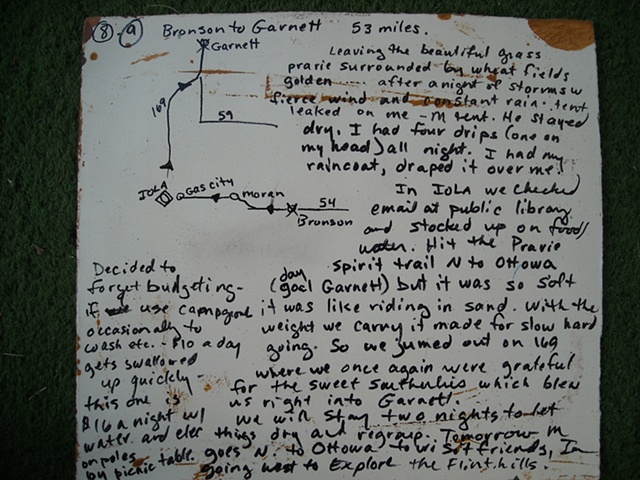 8-a Bronson to Garnett 53 miles.
Garnett
169
59
IOLA
Gas city
moran
54
Bronson
Leaving the beautiful grass
prarie surrounded by wheat fields
golden after a night of storms w
fierce wind and constant rain. tent
leaked on me - M tent. He stayed
dry. I had four drips (one on
my head) all night. I had my
raincoat, draped it over me!
In IOLA we checked
email at public library
and stocked up on food/
water. Hit the Pravie
spirit trail N to Ottowa
day
(goal Garnett) but it was so soft
it was like riding in sand. With the
weight we carry it made for slow hard
going. So we jumed out on 169
where we once again were grateful
for the sweet southulus which blew
us right into Garnett.
we will stay two nights to let
things dry and regroup. Tomorrow M
goes N. to Ottowa to visit friends, Im
going west to Explore the Flinthills.
Decided to
forget budgeting-
if we use campground
occasionally to
wash etc. - $10 a day
gets swallowed
up quickly -
this one is
$16 a night w/
water and elec
on poles
by picnic table.